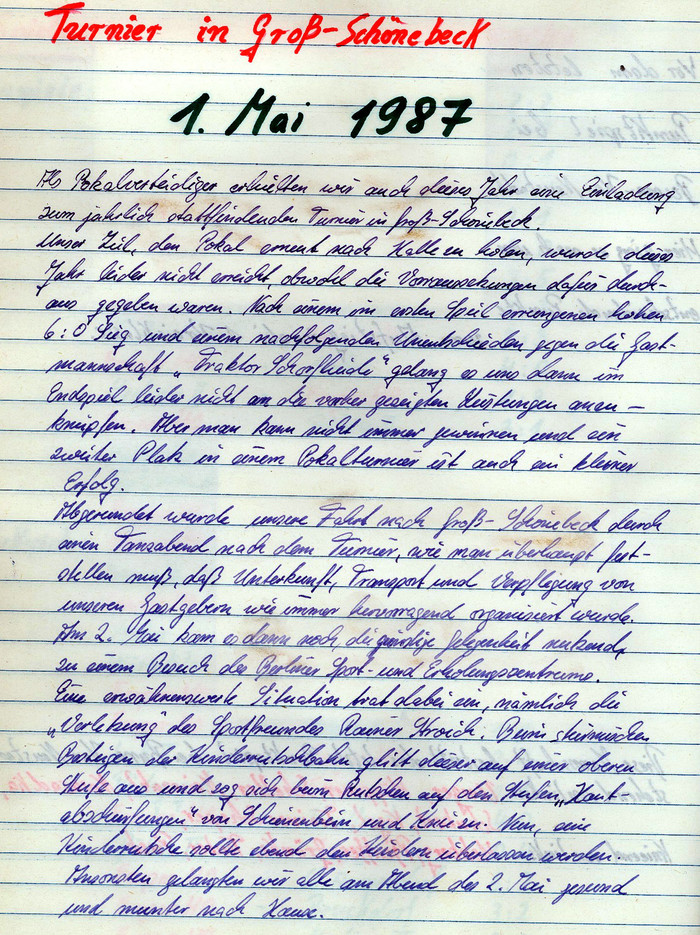 Turnier in Groß-Schönebeck
1. Mai 1987
Als Pokalverteidiger erhielten wir auch dieses Jahr eine Einladung
zum jährlich stattfindenden Turnier in Groß-Schönebeck.
Unser Ziel, den Pokal erneut nach Halle zu holen, wurde dieses
Jahr leider nicht erreicht, obwohl die Vorraussetzungen dafür durch-
aus gegeben waren. Nach einem im ersten Spiel errungenen hohen
6:0 Sieg und einem nachfolgenden Unentschieden gegen die Gast-
mannschaft „Traktor Schorfheide" gelang es uns dann im
Endspiel leider nicht an die vorher gezeigten Leistungen anzu-
knüpfen. Aber man kann nicht immer gewinnen und ein
zweiter Platz in einem Pokalturnier ist auch ein kleiner
Erfolg.
Abgerundet wurde unsere Fahrt nach Groß-Schönebeck durch
einen Tanzabend nach dem Turnier, wie man überhaupt fest-
stellen muß, daß Unterkunft, Transport und Verpflegung von
unseren Gastgebern wie immer hervorragend organisiert wurde.
Am 2. Mai kam es dann noch, die günstige Gelegenheit nutzend,
zu einem Besuch des Berliner Sport- und Erholungszentrums.
Eine erwähnenswerte Situation trat dabei ein, nämlich die
„Verletzung" des Sportfreundes Rainer Stroich. Beim stürmischen
Besteigen der Kinderrutschbahn glitt dieser auf einer oberen
Stufe aus und zog sich beim Rutschen auf den Stufen „Haut-
abschürfungen" von Schienenbein und Knie zu. Nun, eine
Kinderrutsche sollte ebend den Kindern überlassen werden.
Ansonsten gelangten wir alle am Abend des 2. Mai gesund
und munter nach Hause.